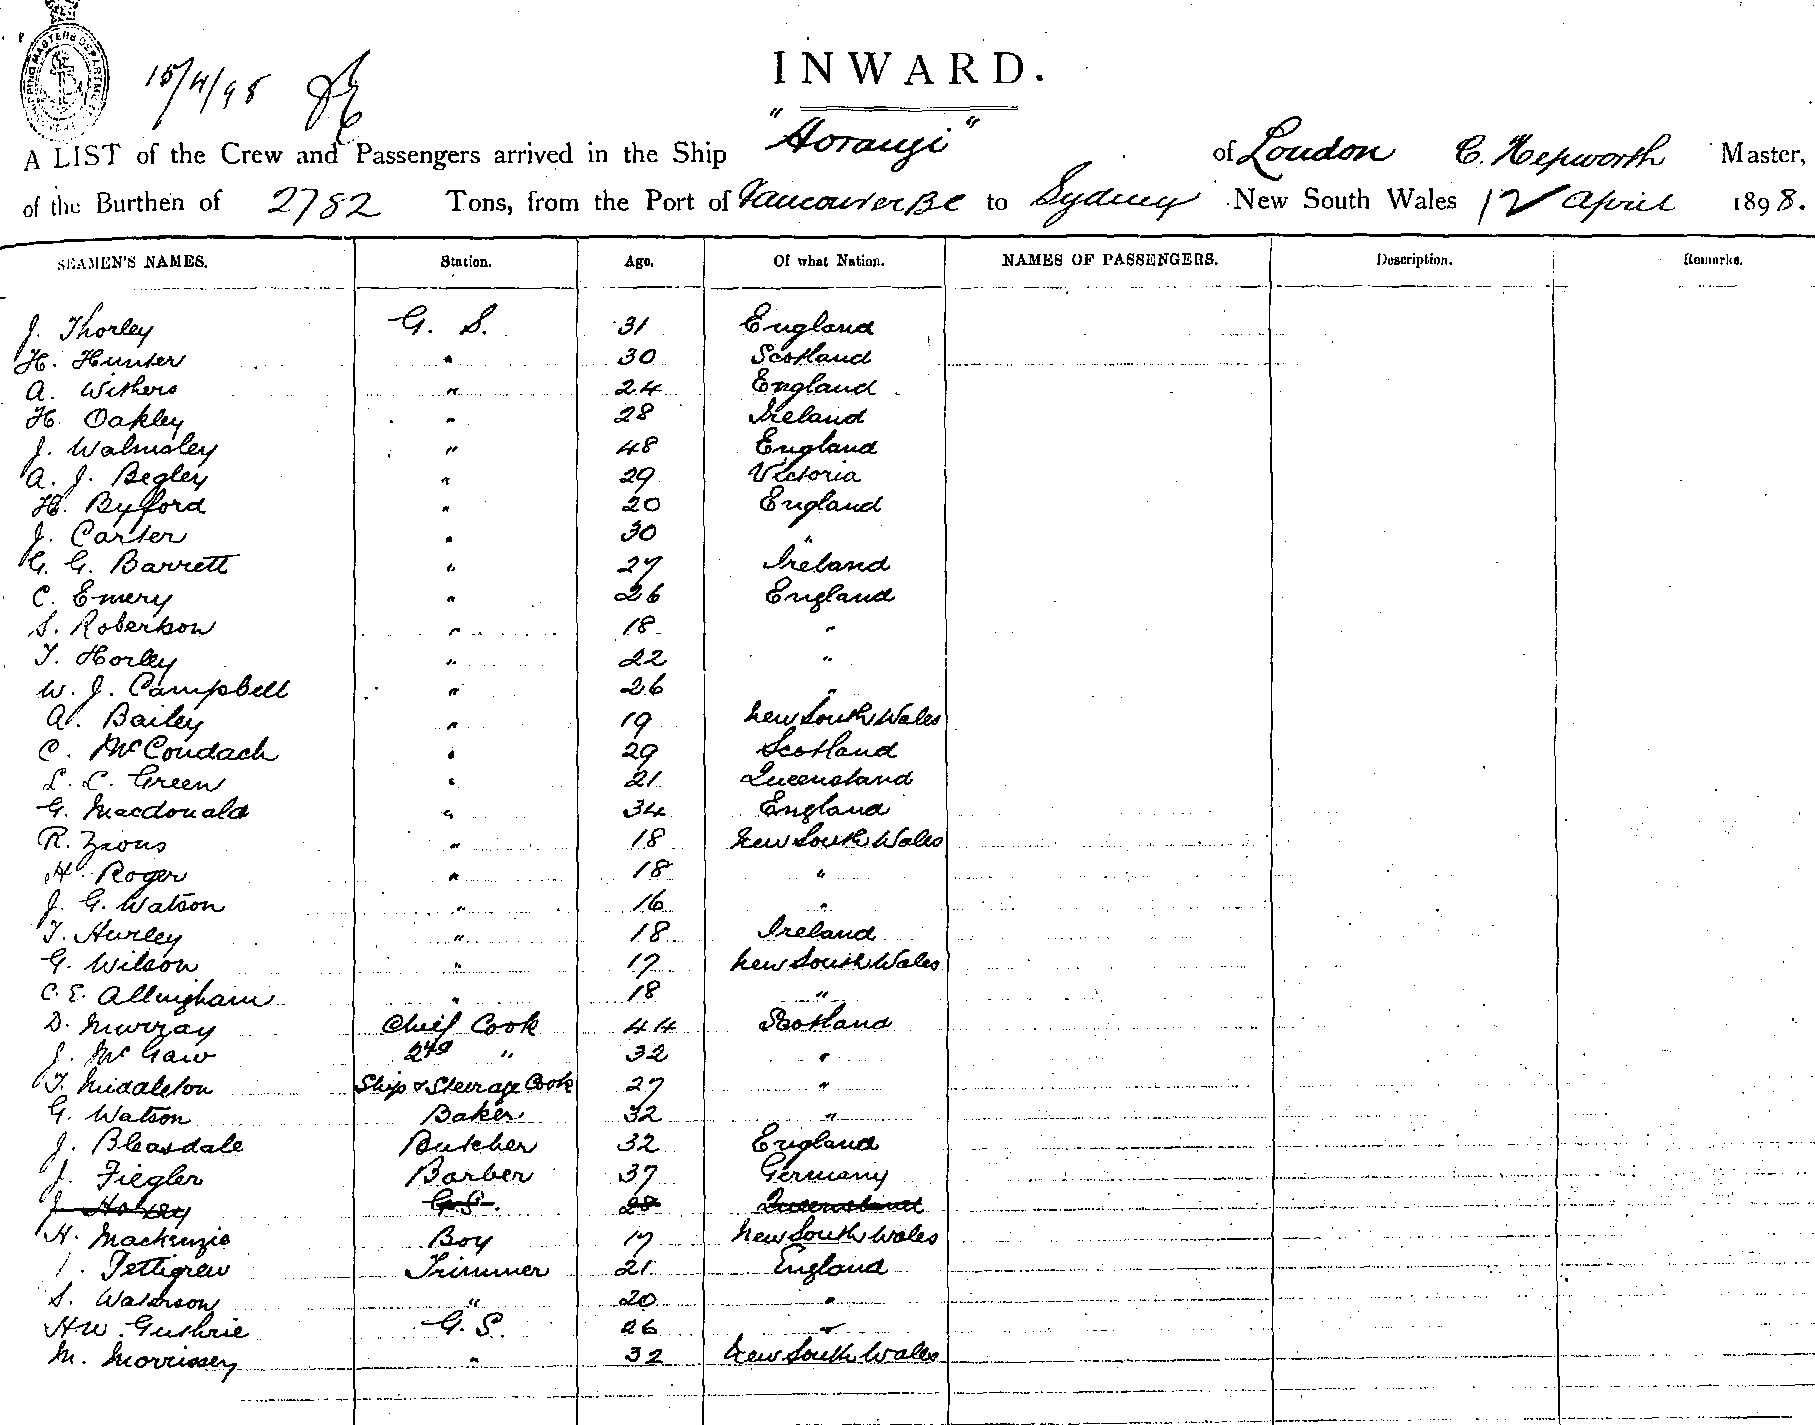 15/4/98
INWARD.
A LIST of the Crew and Passengers arrived in the Ship "Aorangi" of London C. Hepworth Master,
of the Burthen of 2782 Tons, from the Port of Vancouver BC to Sydney New South Wales 12 April 1898.
SEAMEN'S NAMES. Station. Age. Of what Nation. NAMES OF PASSENGERS. Description. Remarks.
J. Thorley G. S. 31 England
H. Hunter " 30 Scotland
A. Withers " 24 England
H. Oakley " 28 Ireland
J. Walmsley " 48 England
A. J. Begley " 29 Victoria
H. Byfford " 20 England
J. Carter " 30 "
G. G. Barrett " 27 Ireland
C. Emery " 26 England
S. Robertson " 18 "
T. Horley " 22 "
W. J. Campbell " 26 "
A. Bailey " 19 New South Wales
C. McCondach " 29 Scotland
L. C. Green " 21 Queensland
G. Macdonald " 34 England
R. Zions " 18 New South Wales
H. Roger " 18 "
J. G. Watson " 16 "
T. Hurley " 18 Ireland
G. Wilson " 17 New South Wales
C. E. Allingham " 18 "
D. Murray Chief Cook 44 Scotland
J. McGaw 2nd " 32 "
T. Middleton Ship & Steerage Cook 27 "
G. Watson Baker 32 "
J. Bleasdale Butcher 32 England
J. Fiegler Barber 37 Germany
J. G.S. 28 Queensland
H. Mackenzie Boy 17 New South Wales
Pettigrew Trimmer 21 England
S. Waterson " 20 "
H W. Guthrie G. S. 26 "
M. Morrissey " 32 New South Wales